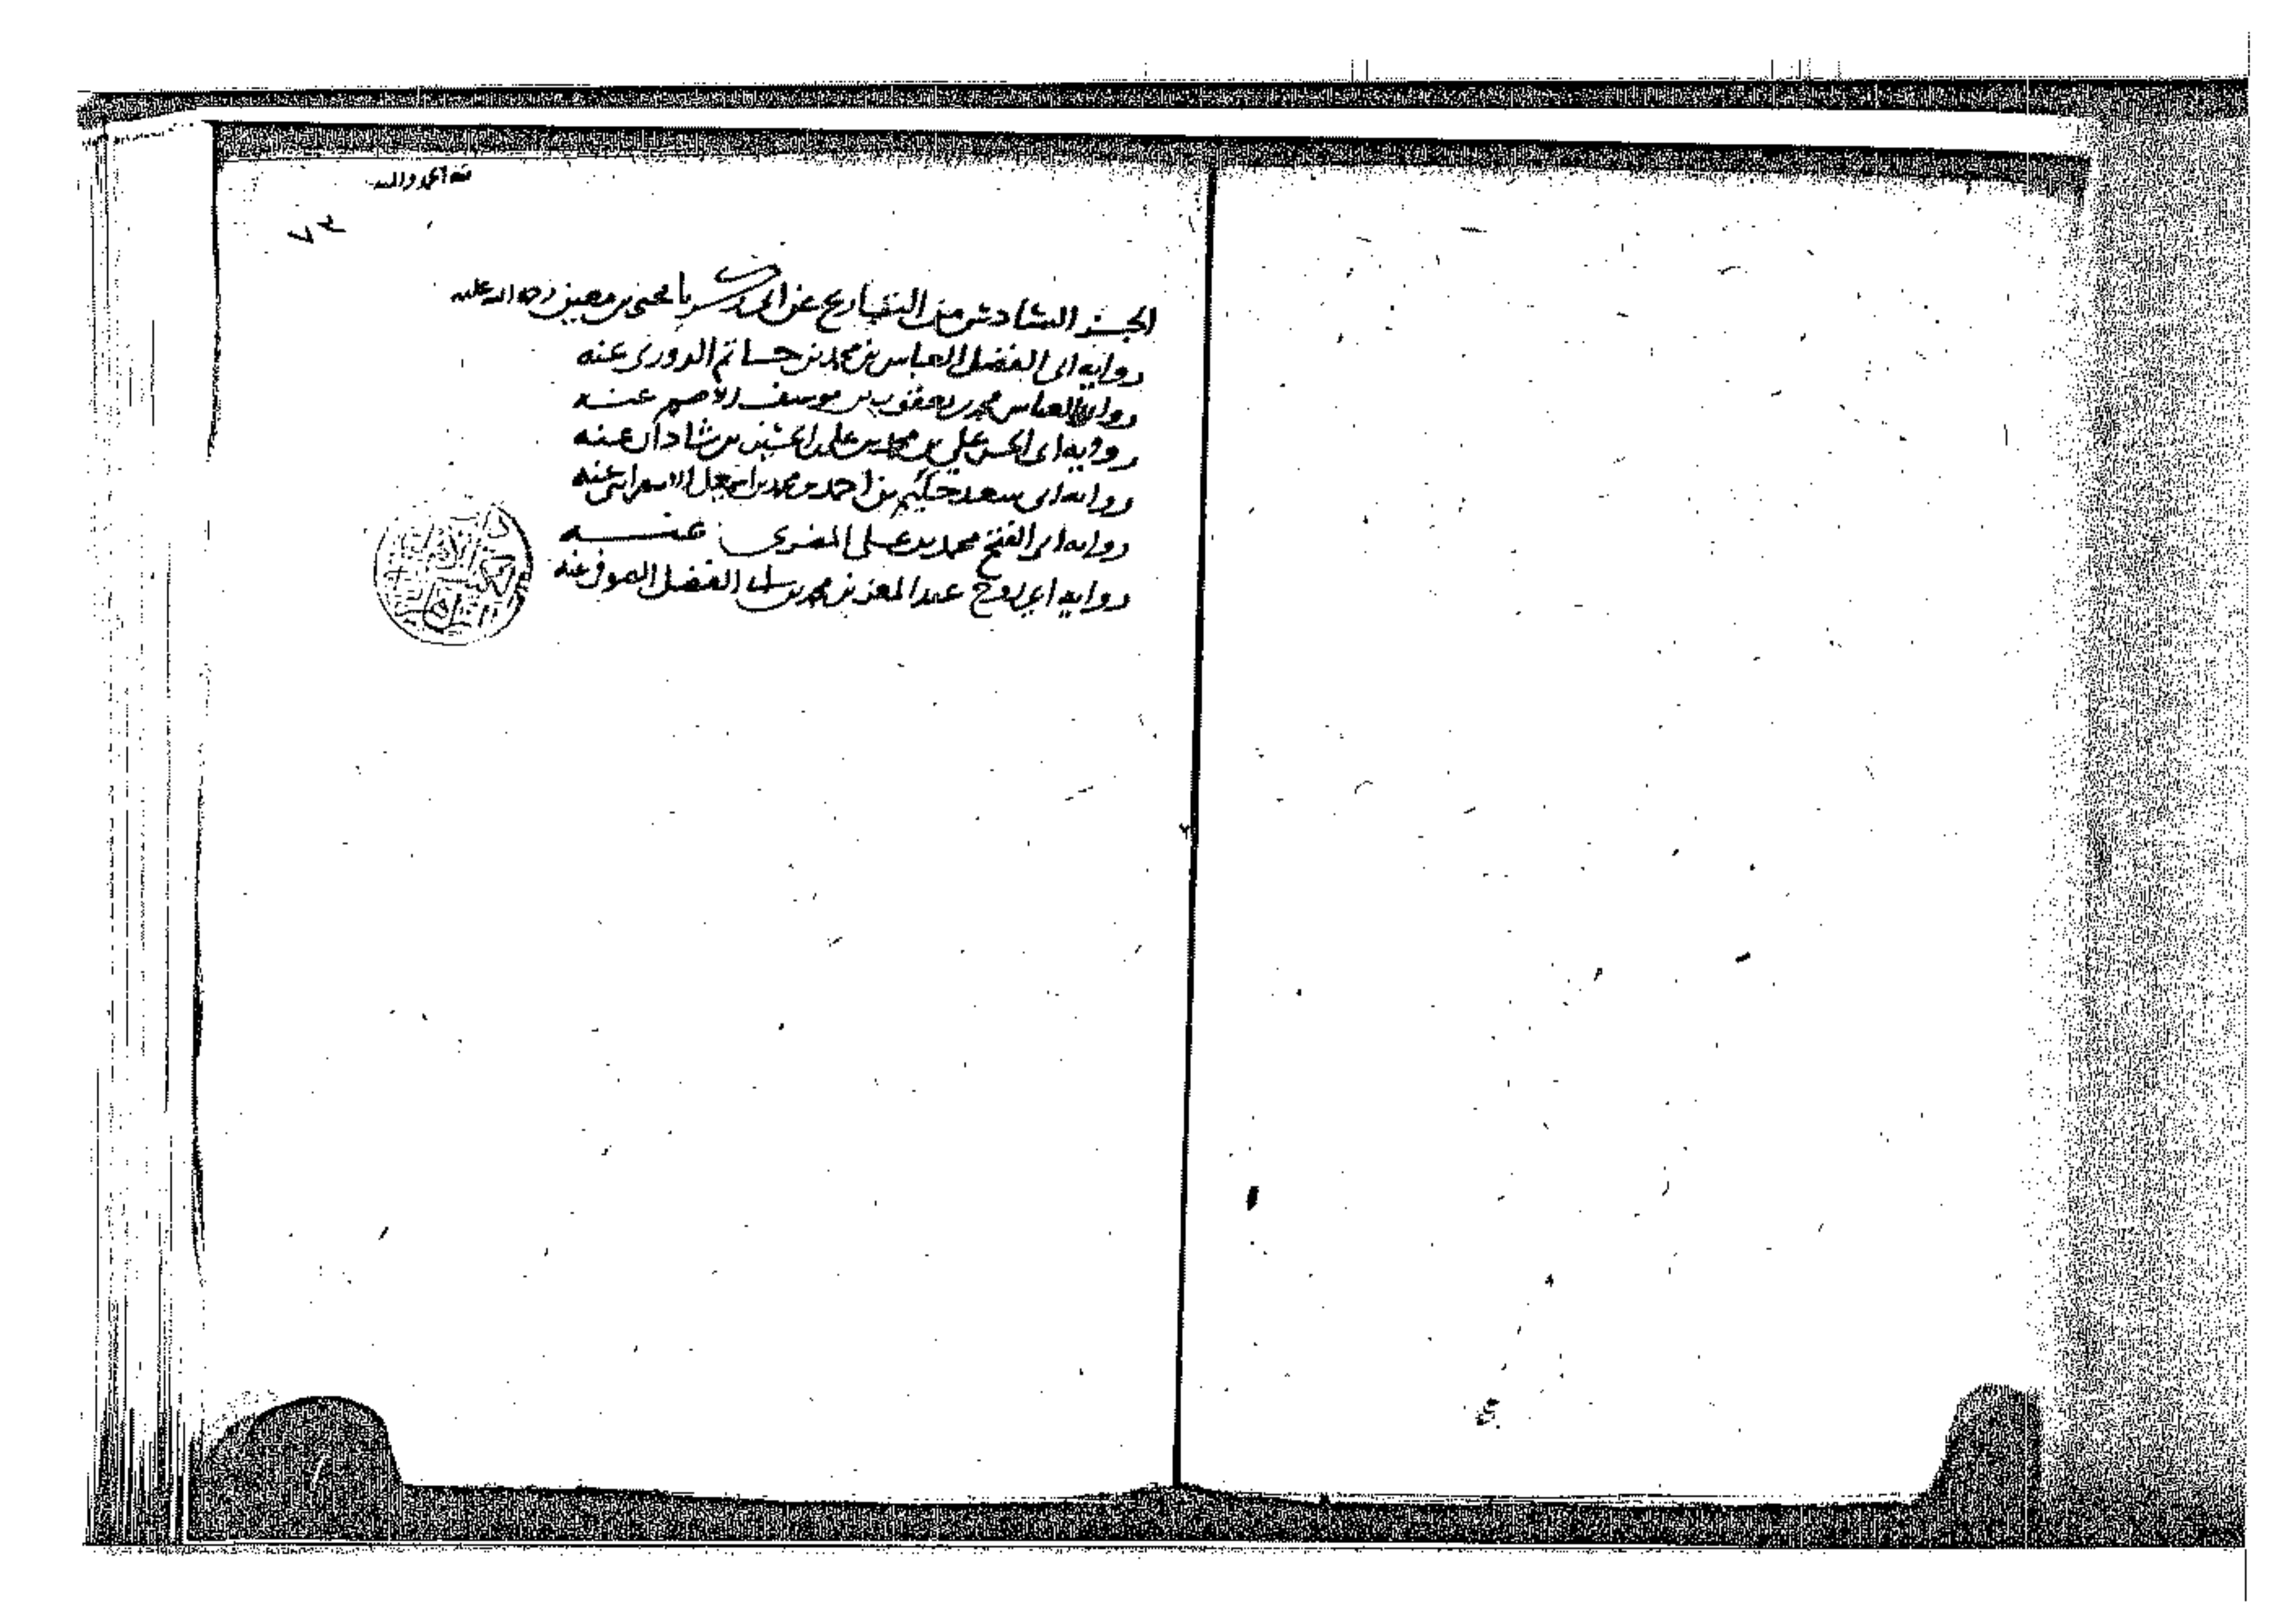 ٧٣
الجزء السادس من التاريخ عن ابي زكريا يحيى بن معين رحمة الله عليه
رواية ابي الفضل العباس بن محمد بن حاتم الدوري عنه
رواية ابي العباس محمد بن يعقوب بن يوسف الاصم عنه
رواية ابي الحسن علي بن محمد بن علي بن الحسين بن شاذان عنه
رواية ابي سعد حكيم بن احمد بن محمد بن اسمعيل الاسفرايني عنه
رواية ابي الفتح محمد بن علي المضري عنه
رواية ابي روح عبد المعز بن محمد بن ابي الفضل الصوفي عنه